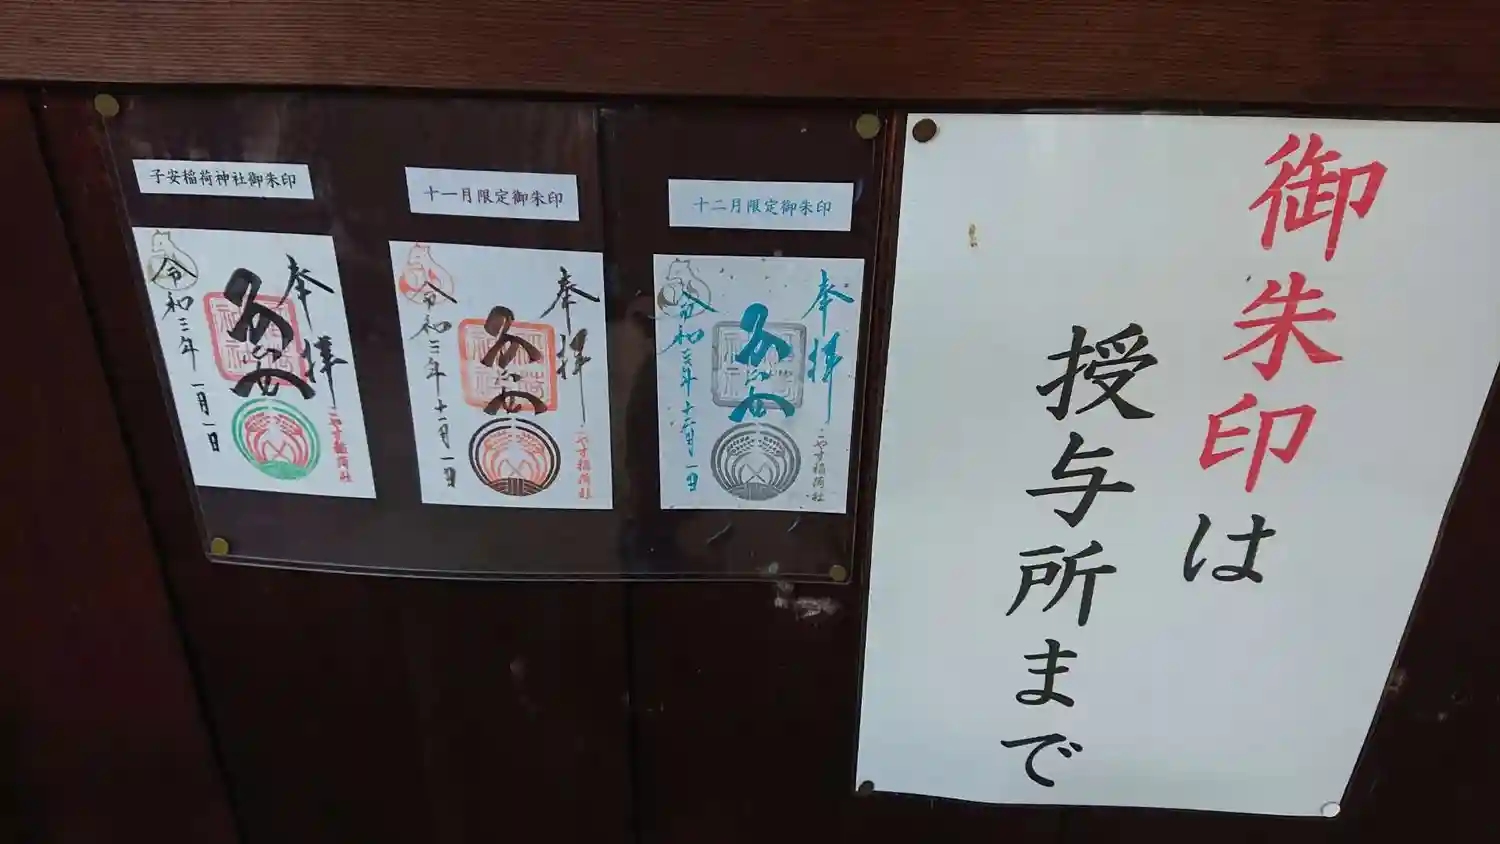 子安稲荷神社御朱印
奉拝
子安
令和三年 一月一日
こやす稲荷社
十一月限定御朱印
奉拝
子安
令和三年 十一月一日
こやす稲荷社
十二月限定御朱印
奉拝
子安
令和三年 十二月一日
こやす稲荷社
御朱印は
授与所まで